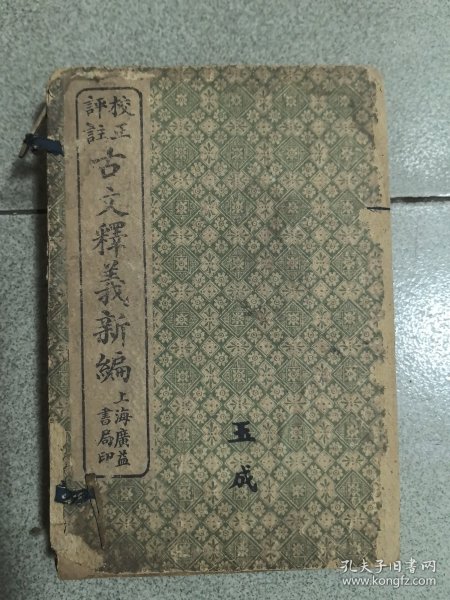 校正
評註
古文釋義新編
上海廣益
書局印
玉成
孔夫子旧书网
www.kongfz.com